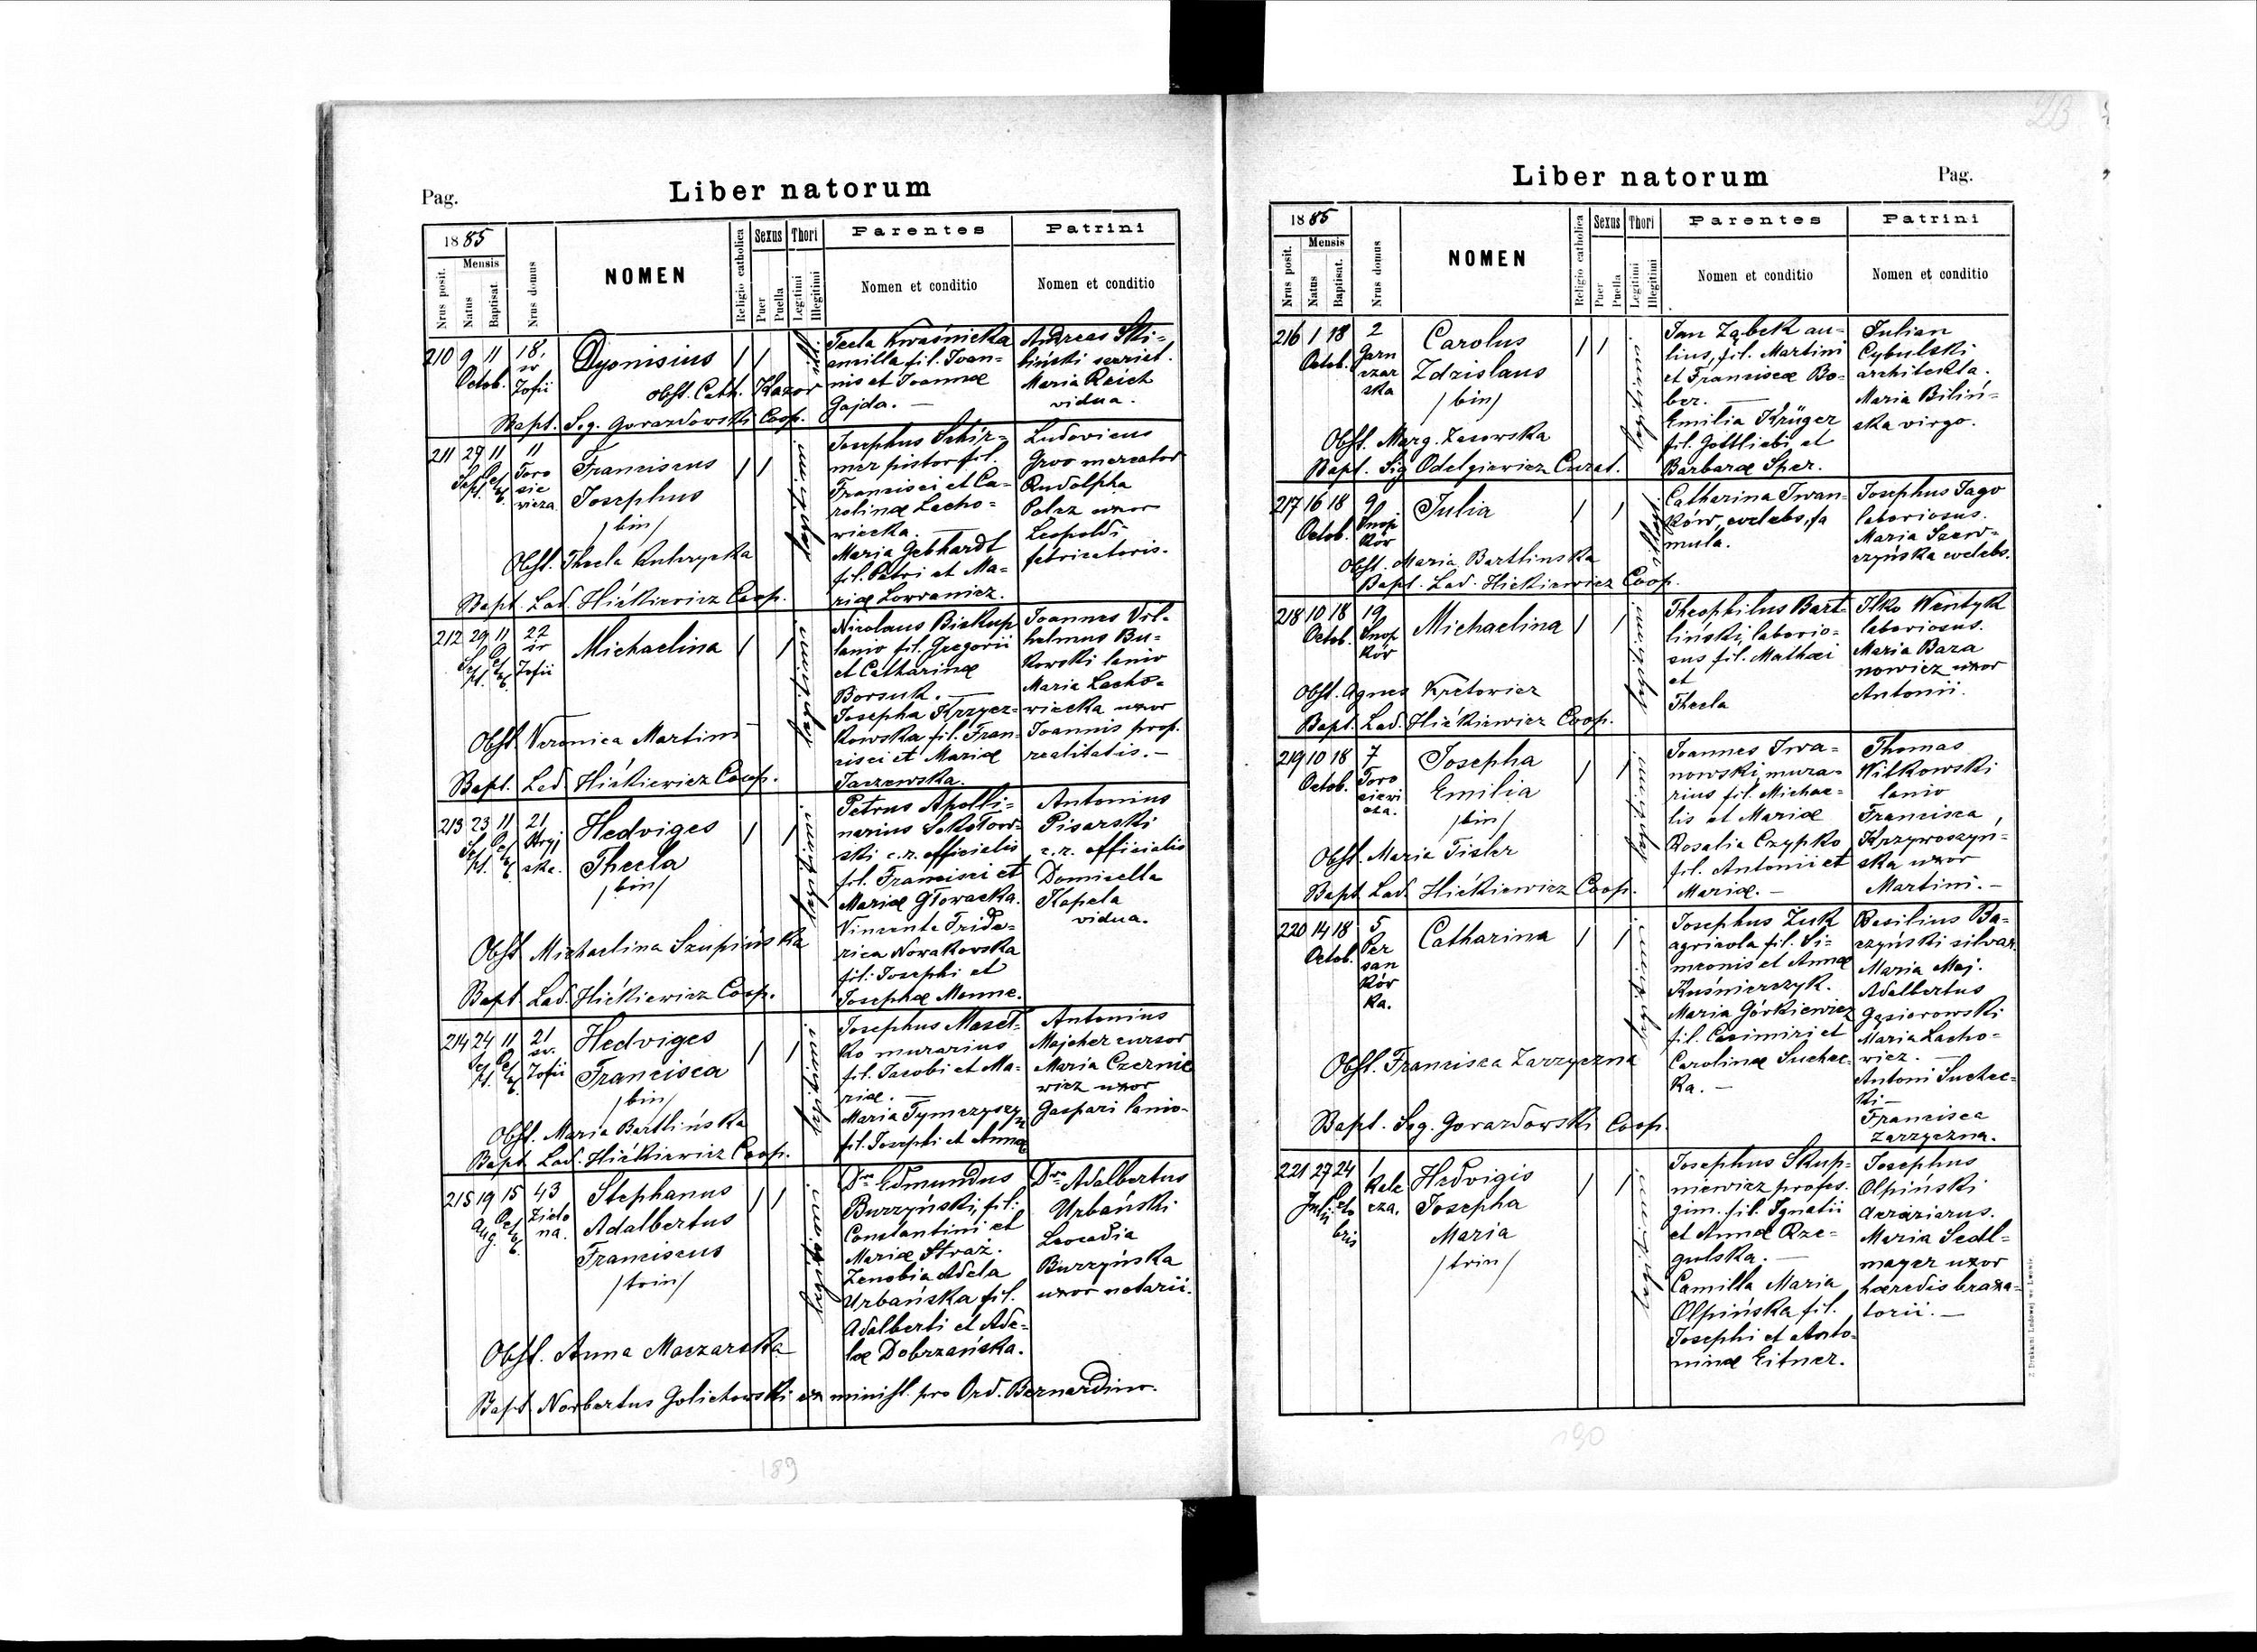 Pag.
Liber natorum
1885
Nrus posit.
Mensis
Natus
Baptisat.
Nrus domus
NOMEN
Religio catholica
Sexus
Puer
Puella
Thori
Legitimi
Illegitimi
Parentes
Nomen et conditio
Patrini
Nomen et conditio
210 9 11 18.
Octob. św Zofii
Dyonisius
Obst. Cath. Kazor
Bapt. Sig. Gorazdowski Coop.
Tecla Kwaśnicka
ancilla fil. Joan-
nis et Joannæ
Gajda. —
Andreas Ski-
biński
Maria Reich
vidua.
211 29 11 11
Sept. Octob. Toro
sie
wicza
Franciscus
Josephus
/bin/
Obst. Thecla
Bapt. Lad. Hićkiewicz Coop.
Josephus Schir-
mer pistor fil.
Francisci et Ca-
rolinæ Lacho-
wiecka. —
Maria Gebhardt
fil. Petri et Ma-
riæ Lowranicz.
Ludovicus
Gros mercator
Rudolpha
Polaz uxor
Leopoldi
fabricatoris.
212 29 11 22
Sept. Octob. św Zofii
Michaelina
Obst. Veronica Martini
Bapt. Lad. Hićkiewicz Coop.
Nicolaus Biskup
lanio fil. Gregorii
et Catharinæ
Borsuk. —
Josepha Krzycz-
kowska fil. Fran-
cisci et Mariæ
Jaczewska.
Joannes Vil-
helmus Bu-
kowski lanio
Maria Lacho-
wiecka uxor
Joannis prop.
realitatis. —
213 23 11 21
Sept. Octob. Stryj
ska.
Hedviges
Thecla
/bin/
Obst. Michaelina Szupińska
Bapt. Lad. Hićkiewicz Coop.
Petrus Apolli-
narius Sokołow-
ski c.r. officialis
fil. Francisci et
Mariæ Głowacka.
Vincenta Fride-
rica Nowakowska
fil. Josephi et
Josephæ Menne.
Antonius
Pisarski
c.r. officialis
Domicella
Kapela
vidua.
214 24 11 21
Sept. Octob. św. Zofii
Hedviges
Francisca
/bin/
Obst. Maria Bartlińska
Bapt. Lad. Hićkiewicz Coop.
Josephus Masel-
ko murarius
fil. Jacobi et Ma-
riæ. —
Maria Tymczyszyn
fil. Josephi et Annæ
Antonius
Majcher cursor
Maria Czernie
wicz uxor
Gaspari lanio-
215 19 15 43
Aug. Octob. Zielo
na.
Stephanus
Adalbertus
Franciscus
/trin/
Obst. Anna Maczarska
Bapt. Norbertus Golichowski ex minist. pro Ord. Bernardino.
Dr Edmundus
Burzyński, fil:
Constantini et
Mariæ Straż.
Zenobia Adela
Urbańska fil.
Adalberti et Ade-
læ Dobrzańska.
Dr Adalbertus
Urbański
Leocadia
Burzyńska
uxor notarii.
189
Liber natorum
Pag.
1885
Nrus posit.
Mensis
Natus
Baptisat.
Nrus domus
NOMEN
Religio catholica
Sexus
Puer
Puella
Thori
Legitimi
Illegitimi
Parentes
Nomen et conditio
Patrini
Nomen et conditio
216 1 18 2
Octob. Garn
czar
ska
Carolus
Zdzislaus
/bin/
Obst. Marg. Zesowska
Bapt. Sig Odelgiewicz Curat.
Jan Ząbek au-
lius, fil. Martini
et Franciscæ Bo-
ber. —
Emilia Krüger
fil. Gottliebi et
Barbaræ Sper.
Julian
Cybulski
architekta.
Maria Biliń-
ska virgo.
217 16 18 9
Octob. Snop
kór
Julia
Obst. Maria Bartlinska
Bapt. Lad. Hićkiewicz Coop.
Catharina Iwan-
ków, coelebs, fa
mula.
Josephus Jago
laboriosus.
Maria Szew-
czyńska coelebs.
218 10 18 19
Octob. Snop
kór
Michaelina
Obst. Agnes Kretowicz
Bapt. Lad. Hićkiewicz Coop.
Theophilus Bart-
liński, laborio-
sus fil. Mathæi
et
Thecla
Ilko Wentyk
laboriosus.
Maria Bara
nowicz uxor
Antonii.
219 10 18 7
Octob. Toro
siewi
cza.
Josepha
Emilia
/bin/
Obst. Maria Tisler
Bapt. Lad. Hićkiewicz Coop.
Joannes Iwa-
nowski, mura-
rius fil. Michae-
lis et Mariæ
Rosalia Czypko
fil. Antonii et
Mariæ. —
Thomas
Witkowski
lanio
Francisca
Krzywoszyń-
ska uxor
Martini. —
220 14 18 5
Octob. Per
san
kór
ka.
Catharina
Obst. Francisca Zarzyczna
Bapt. Sig. Gorazdowski Coop.
Josephus Żuk
agricola fil. Si-
meonis et Annæ
Kuśnierczyk.
Maria Górkiewicz
fil. Casimiri et
Carolinæ Suchec-
ka. —
Basilius Ba-
czyński silvar.
Maria Maj.
Adalbertus
Gąsiorowski
Maria Lacho-
wicz. —
Antoni Suchec-
ki —
Francisca
Zarzyczna.
221 27 24 1
Julii Octo
bris Kale
cza.
Hedvigis
Josepha
Maria
/trin/
Josephus Skup-
niewicz profes.
gim. fil. Ignatii
et Annæ Rze-
gulska. —
Camilla Maria
Olpińska fil.
Josephi et Anto-
ninæ Eitner.
Josephus
Olpiński
Maria Sedl-
mayer uxor
hæredis braxa-
torii. —
Z Drukarni Ludowej we Lwowie
190